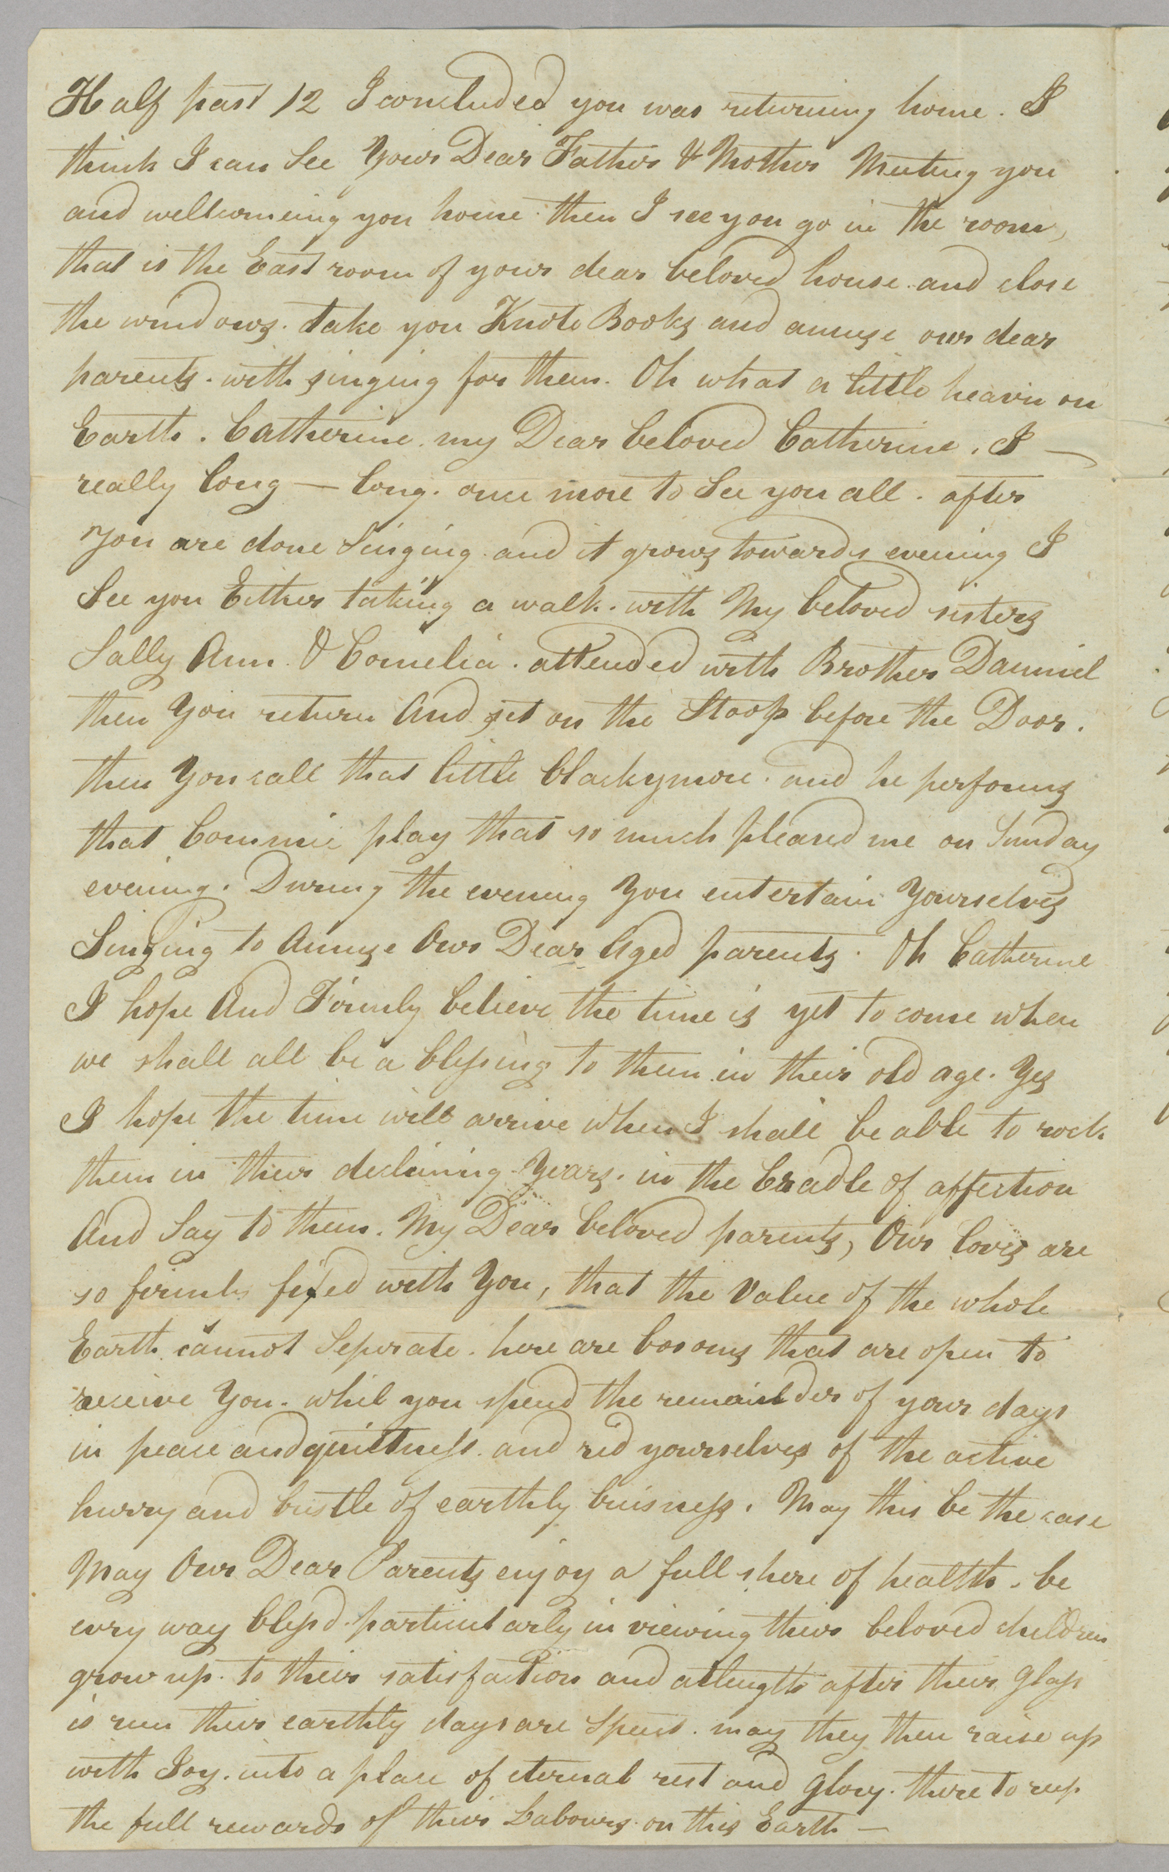 Half past 12 I concluded you was returning home. I
think I can See Your Dear Father & Mother Meeting you
and wellcomeing you home. then I see you go in the room,
that is the East room of your dear beloved house and close
the windows. take you Knote Books and amuse our dear
parents. with singing for them. Oh what a little heavin on
Earth. Catherine. my Dear beloved Catherine. I —
really long — long. once more to See you all. after
you are done Singing and it grows towards evening I
See you Either taking a walk. with My beloved sisters
Sally Ann & Cornelia. attended with Brother Danniel
then You return And set on the Stoop before the Door.
then You call that little blackymore. and he performs
that Commic play that so much pleased me on Sunday
evening. During the evening You entertain Yourselves
Singing to Amuse Our Dear Aged parents. Oh Catherine
I hope And Firmly believe the time is yet to come when
we shall all be a blessing to them in their old age. Yes
I hope the time will arrive When I shall be able to rock
them in their declining Years. in the Cradle of affection
And Say to them. My Dear beloved parents, Our loves are
so firmly fixed with You, that the Value of the whole
Earth cannot Seperate. here are bosoms that are open to
receive You. whil you spend the remainder of your days
in peace and quiettness. and rid yourselves of the active
hurry and bustle of earthly buisness. May this be the case
May Our Dear Parents enjoy a full shere of health. be
evry way blessd particularly in viewing their beloved children
grow up to their satisfaction and atlength after their glass
is run their earthly days are Spent. may they then raise up
with Joy. into a place of eternal rest and glory. there to reep
the full rewards of their Labours on this Earth —